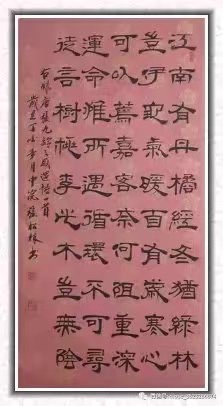 江南有丹橘經冬猶綠林
豈伊地氣暖自有歲寒心
可以薦嘉客奈何阻重深
運命唯所遇循環不可尋
徒言樹桃李此木豈無陰
唐張九齡感遇詩一首
月中浣張松林書